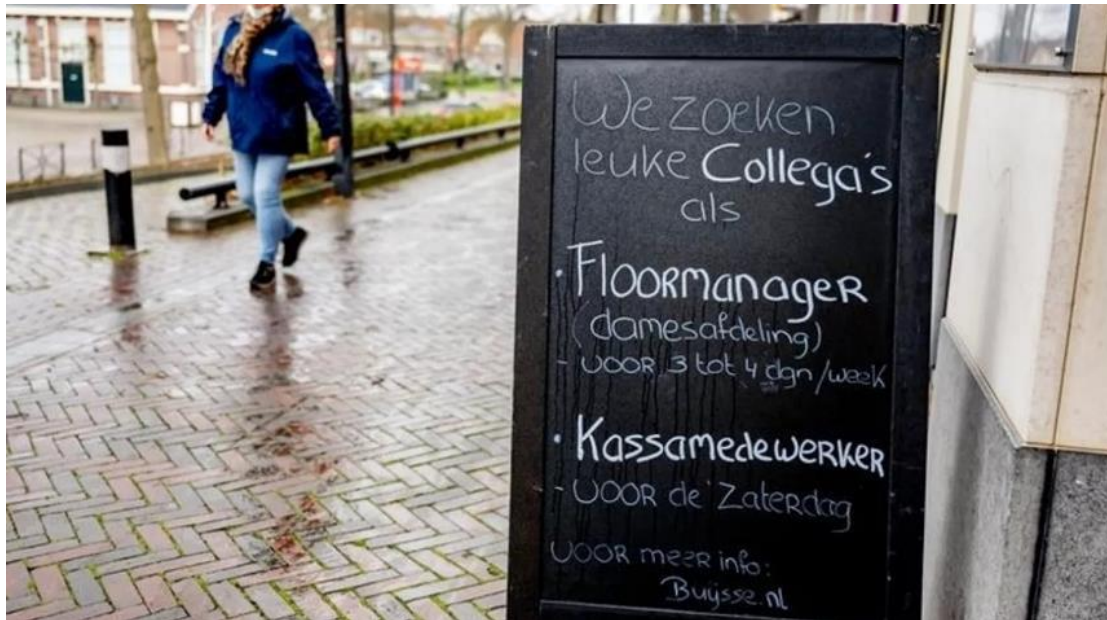 We zoeken
leuke Collega's
als
• Floormanager
(damesafdeling)
- voor 3 tot 4 dgn/week
• Kassamedewerker
- voor de Zaterdag
voor meer info:
Buijsse.nl